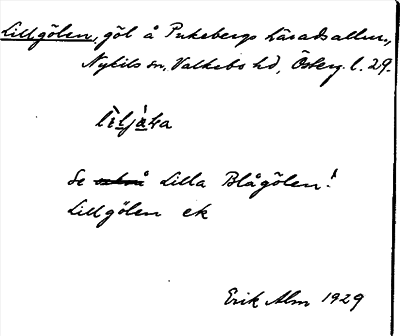 Lillgölen, göl å Pukebergs häradsallm.,
Nykils sn, Valkebo hd, Österg. l. 29.
Se Lilla Blågölen!
Lillgölen ek
Erik Alm 1929